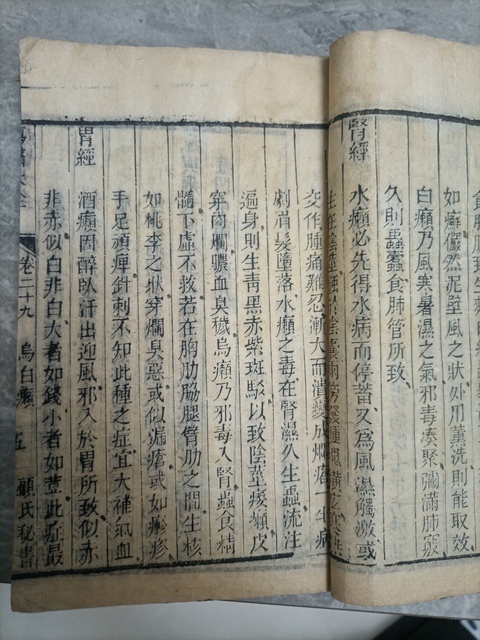 食肺
如癬儼然泥壁風之狀外用薰洗則能取效
白癩乃風寒暑濕之氣邪毒湊聚瀰滿肺竅
久則蟲蠹食肺管所致
腎經
水癩必先得水病而停蓄又為風濕觸激或
交作腫痛難忍漸大而潰變成爛瘡一年病
劇眉髮墮落水癩之毒在腎濕久生蟲流注
遍身則生青黑赤紫斑駁以致陰莖痿癩皮
穿肉爛膿血臭穢烏癩乃邪毒入腎蟲食精
髓下虛不救若在胸肋脇腿臂肋之間生核
如桃李之狀穿爛臭惡或似漏瘡或如癮疹
手足頑痺針刺不知此種之症宜大補氣血
胃經
酒癩因醉臥汗出迎風邪入於胃所致似赤
非赤似白非白大者如錢小者如荳此症最
卷二十九 烏白癩 五 顧氏秘書